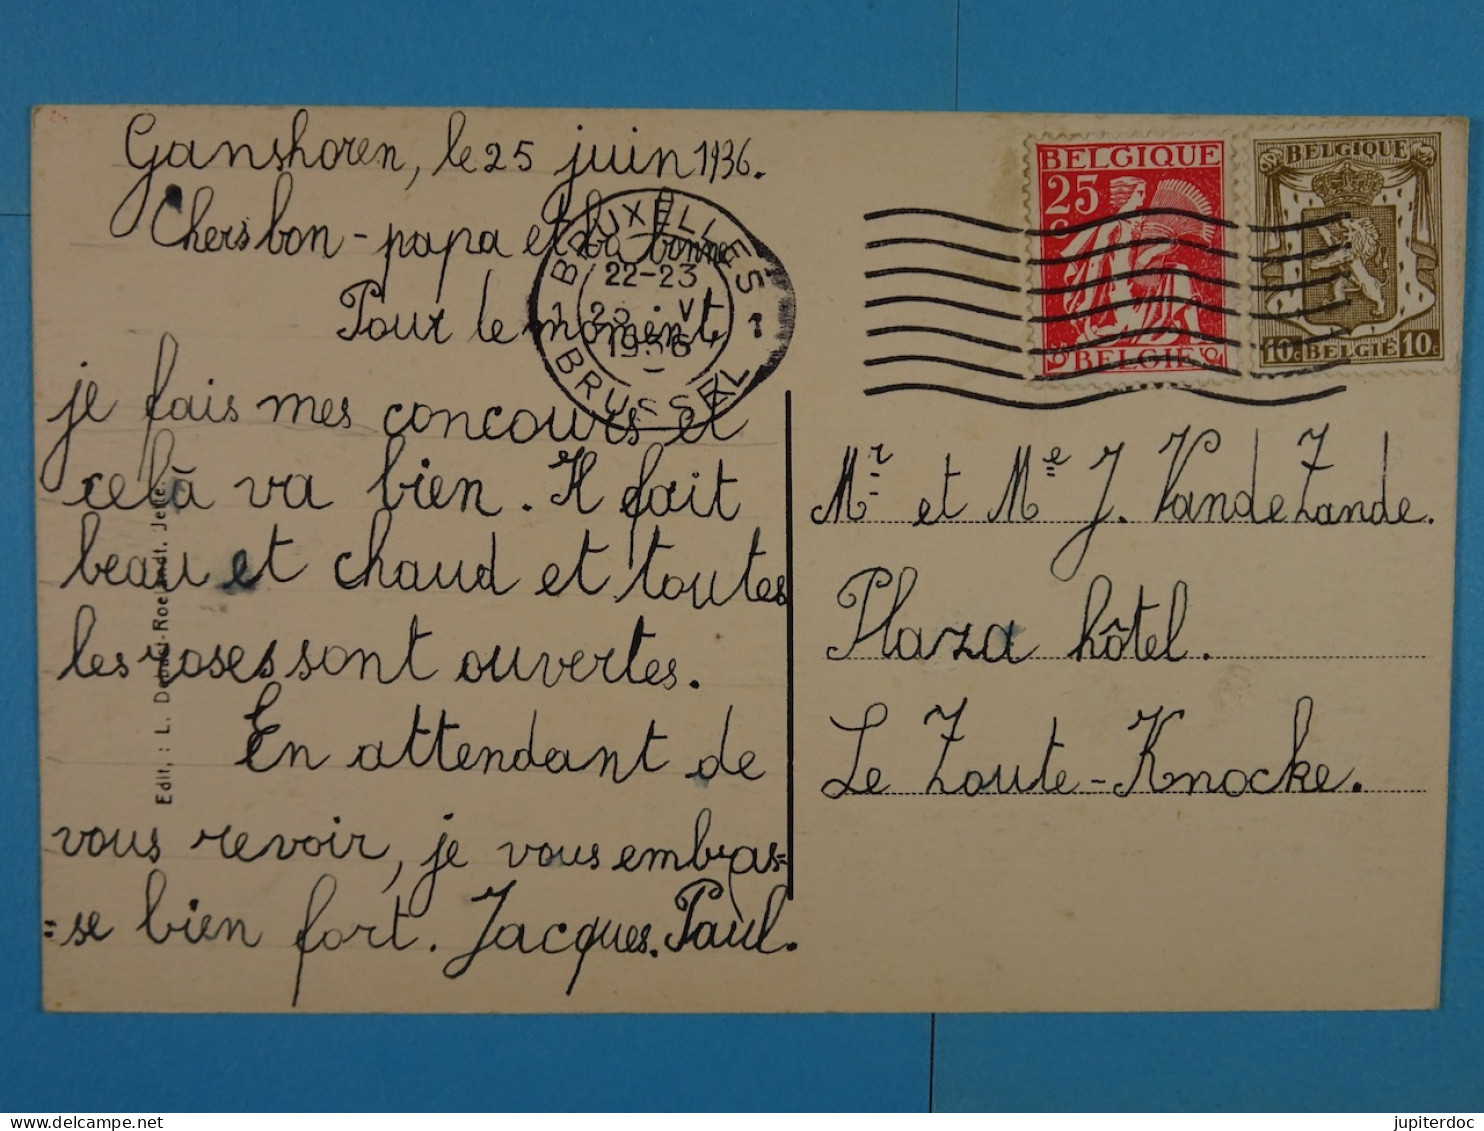 Ganshoren, le 25 juin 1936.
Chers bon-papa et la bonne
Pour le moment,
je fais mes concours et
celà va bien. Il fait
beau et chaud et toutes
les roses sont ouvertes.
En attendant de
vous revoir, je vous embras=
=se bien fort. Jacques. Paul.
BRUXELLES
22-23
VI
1936
1 1
BRUSSEL
Edit. : L. Jette.
BELGIQUE
25
BELGIË
BELGIQUE
10c BELGIË 10c
Mr et Me J. VandeZande.
Plaza hôtel.
Le Zoute-Knocke.
jupiterdoc
delcampe.net